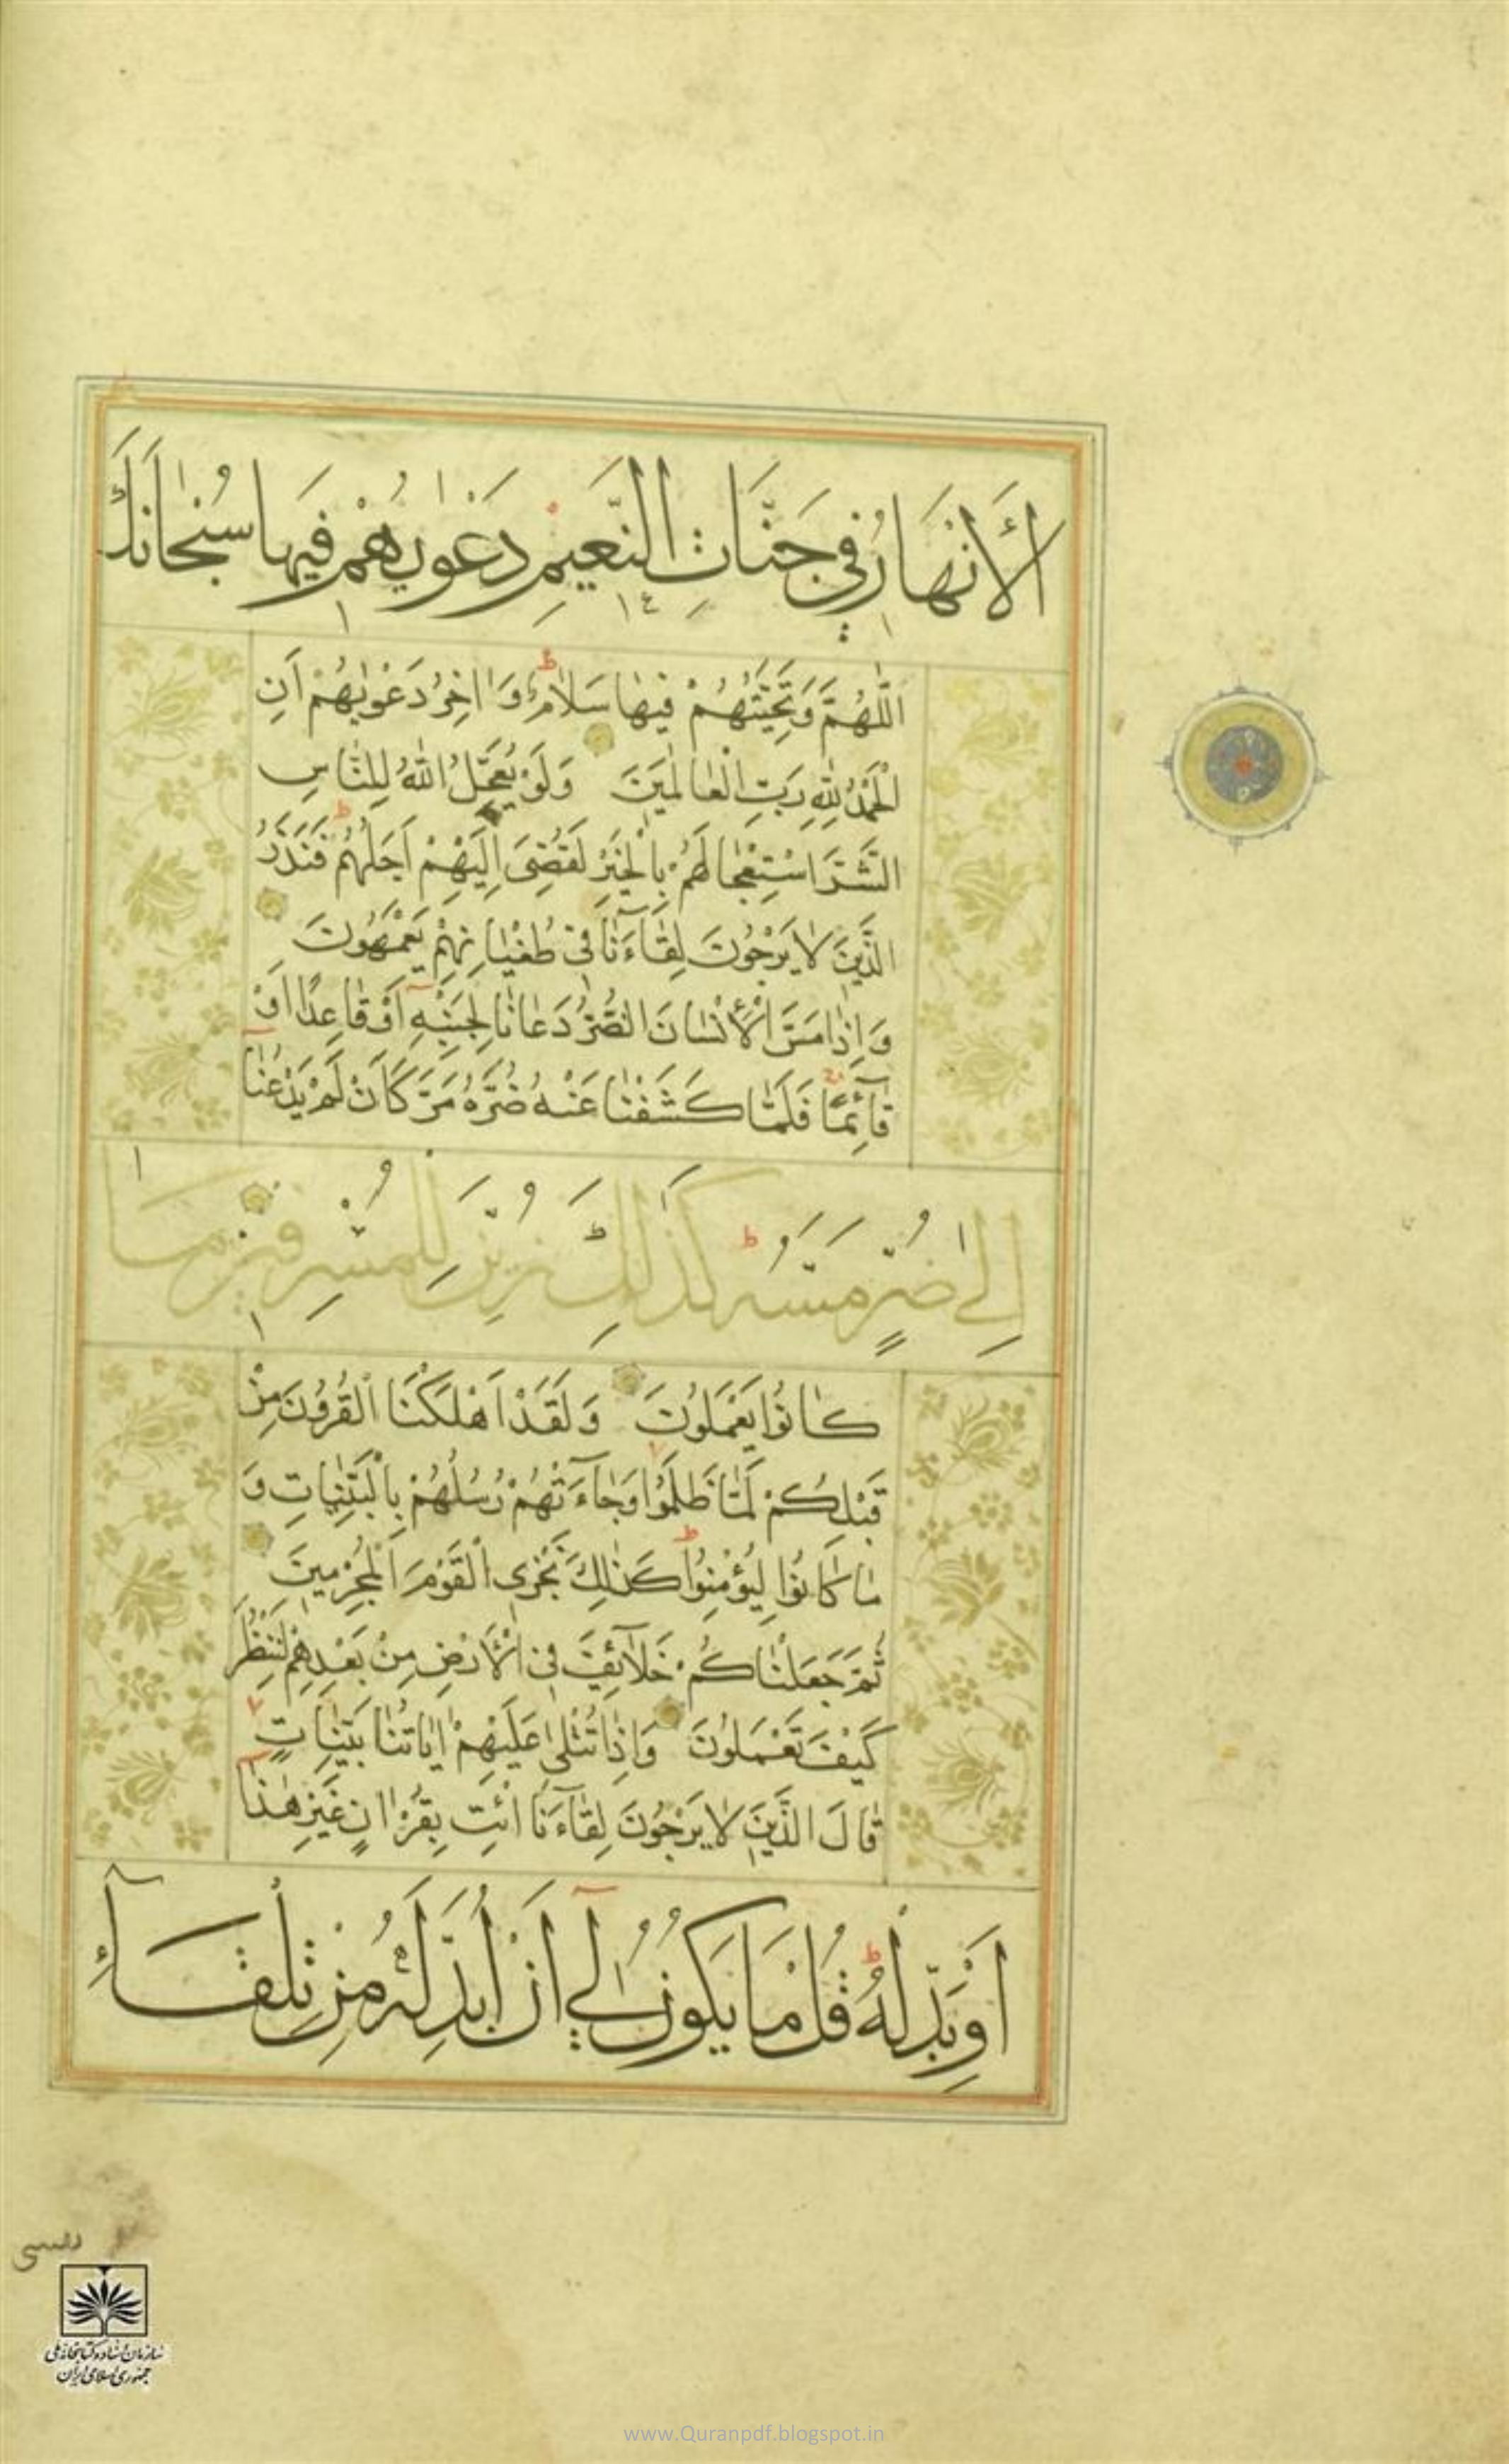 اَلْاَنْهَارُ فِي جَنَّاتِ النَّعِيمِ دَعْوٰيهُمْ فِيهَا سُبْحَانَكَ
اللّٰهُمَّ وَتَحِيَّتُهُمْ فِيهَا سَلَامٌ وَاٰخِرُ دَعْوٰيهُمْ اَنِ
الْحَمْدُ لِلّٰهِ رَبِّ الْعَالَمِينَ وَلَوْ يُعَجِّلُ اللّٰهُ لِلنَّاسِ
الشَّرَّ اسْتِعْجَالَهُمْ بِالْخَيْرِ لَقُضِيَ اِلَيْهِمْ اَجَلُهُمْ فَنَذَرُ
الَّذِينَ لَا يَرْجُونَ لِقَآءَنَا فِي طُغْيَانِهِمْ يَعْمَهُونَ
وَاِذَا مَسَّ الْاِنْسَانَ الضُّرُّ دَعَانَا لِجَنْبِهِ اَوْ قَاعِدًا اَوْ
قَآئِمًا فَلَمَّا كَشَفْنَا عَنْهُ ضُرَّهُ مَرَّ كَاَنْ لَمْ يَدْعُنَا
اِلٰى ضُرٍّ مَسَّهُ كَذٰلِكَ زُيِّنَ لِلْمُسْرِفِينَ مَا
كَانُوا يَعْمَلُونَ وَلَقَدْ اَهْلَكْنَا الْقُرُونَ مِنْ
قَبْلِكُمْ لَمَّا ظَلَمُوا وَجَآءَتْهُمْ رُسُلُهُمْ بِالْبَيِّنَاتِ وَ
مَا كَانُوا لِيُؤْمِنُوا كَذٰلِكَ نَجْزِي الْقَوْمَ الْمُجْرِمِينَ
ثُمَّ جَعَلْنَاكُمْ خَلَآئِفَ فِي الْاَرْضِ مِنْ بَعْدِهِمْ لِنَنْظُرَ
كَيْفَ تَعْمَلُونَ وَاِذَا تُتْلٰى عَلَيْهِمْ اٰيَاتُنَا بَيِّنَاتٍ
قَالَ الَّذِينَ لَا يَرْجُونَ لِقَآءَنَا ائْتِ بِقُرْاٰنٍ غَيْرِ هٰذَا
اَوْ بَدِّلْهُ قُلْ مَا يَكُونُ لِي اَنْ اُبَدِّلَهُ مِنْ تِلْقَآءِ
سازمان اسناد و کتابخانه ملی
جمهوری اسلامی ایران
www.Quranpdf.blogspot.in